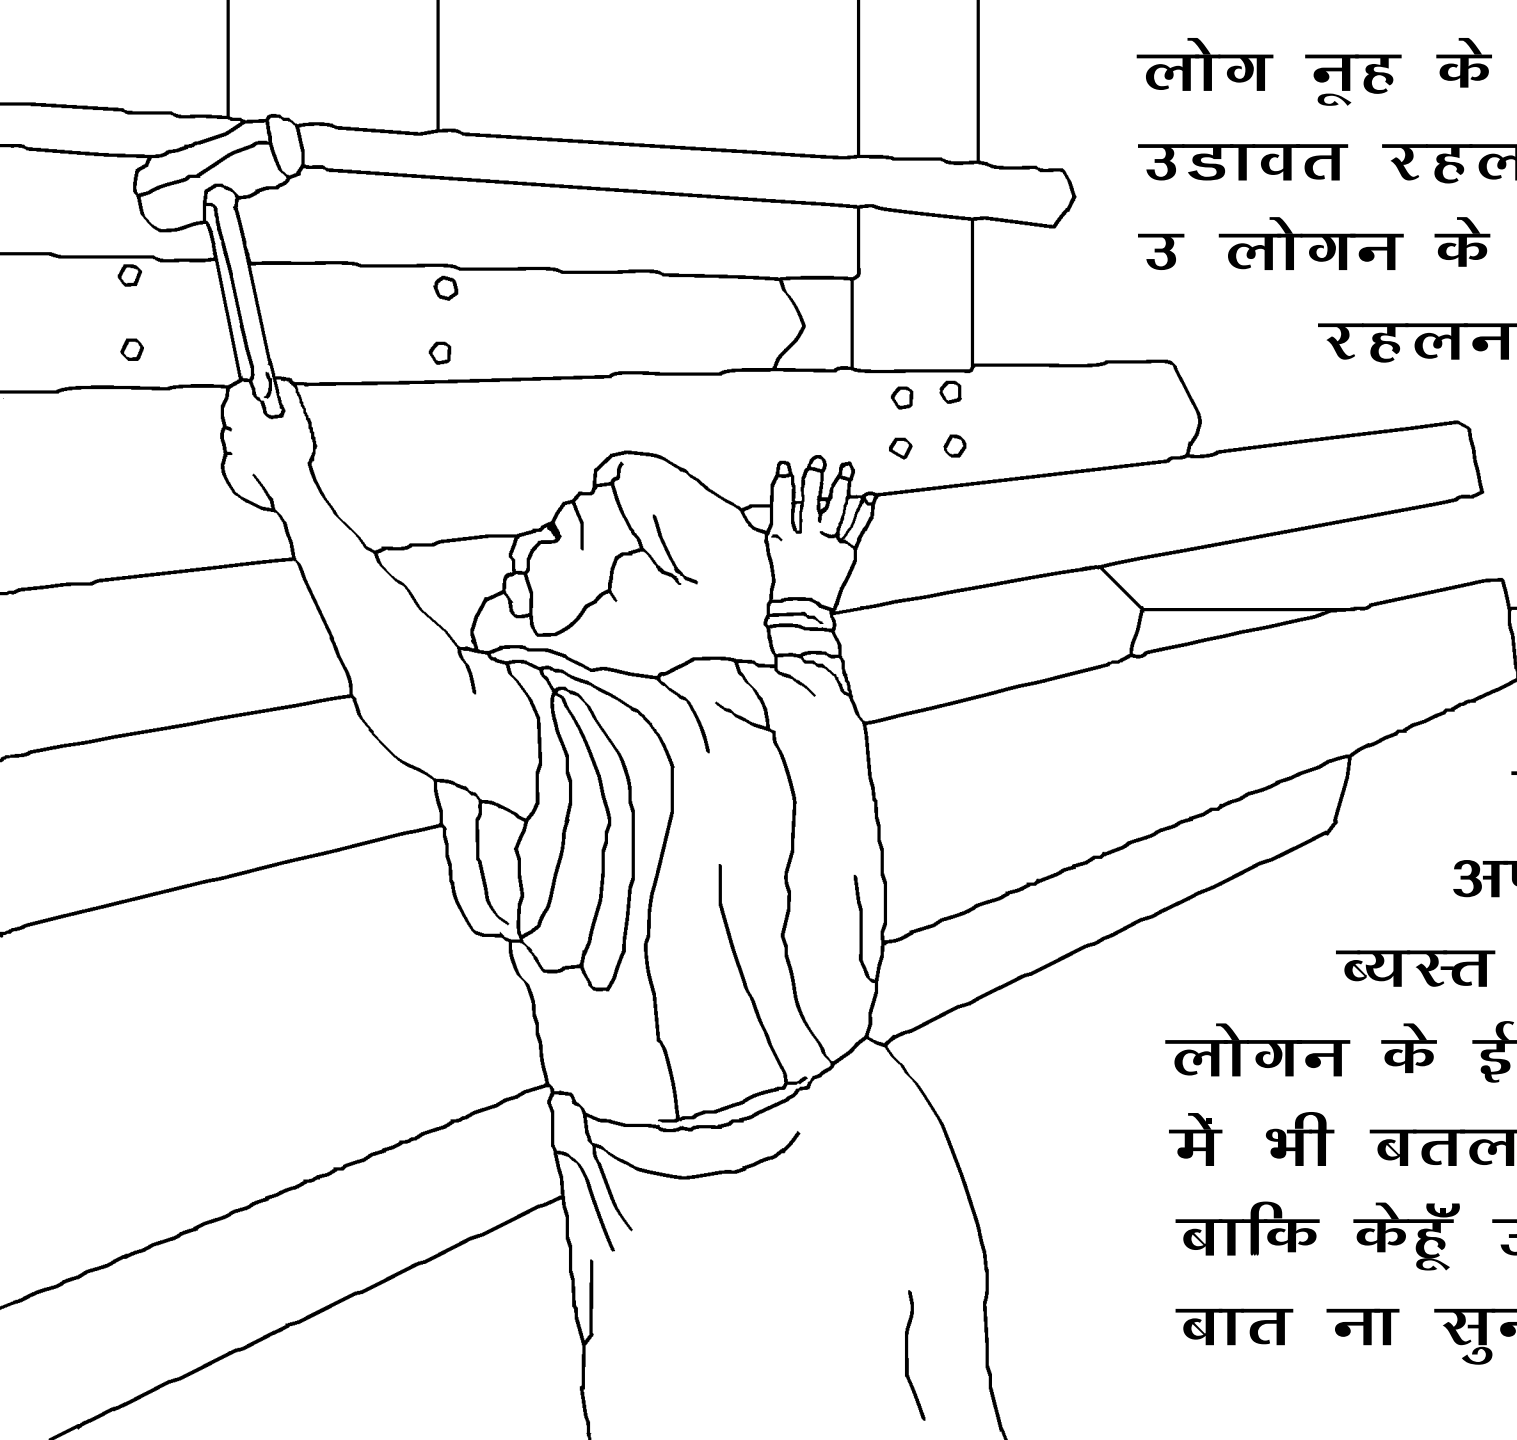 लोग नूह के
उडावत रहल
उ लोगन के
रहलन
ब्यस्त
लोगन के ई
में भी बतल
बाकि केहूँ
बात ना